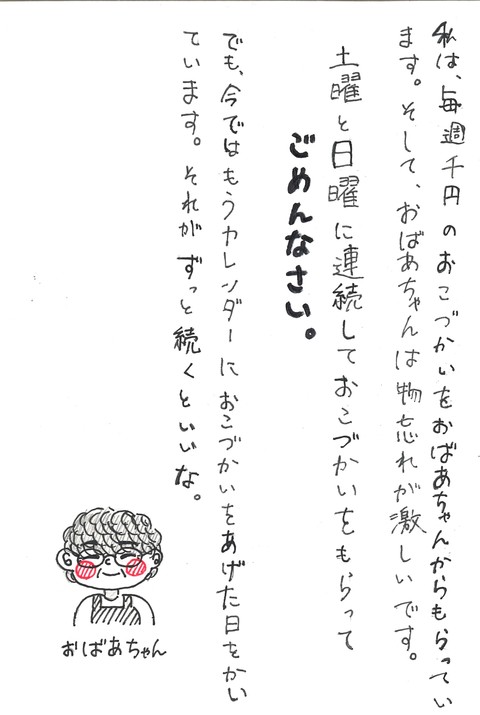 私は、毎週千円のおこづかいをおばあちゃんからもらってい
ます。そして、おばあちゃんは物忘れが激しいです。
土曜と日曜に連続しておこづかいをもらって
ごめんなさい。
でも、今ではもうカレンダーにおこづかいをあげた日をかい
ています。それがずっと続くといいな。
おばあちゃん